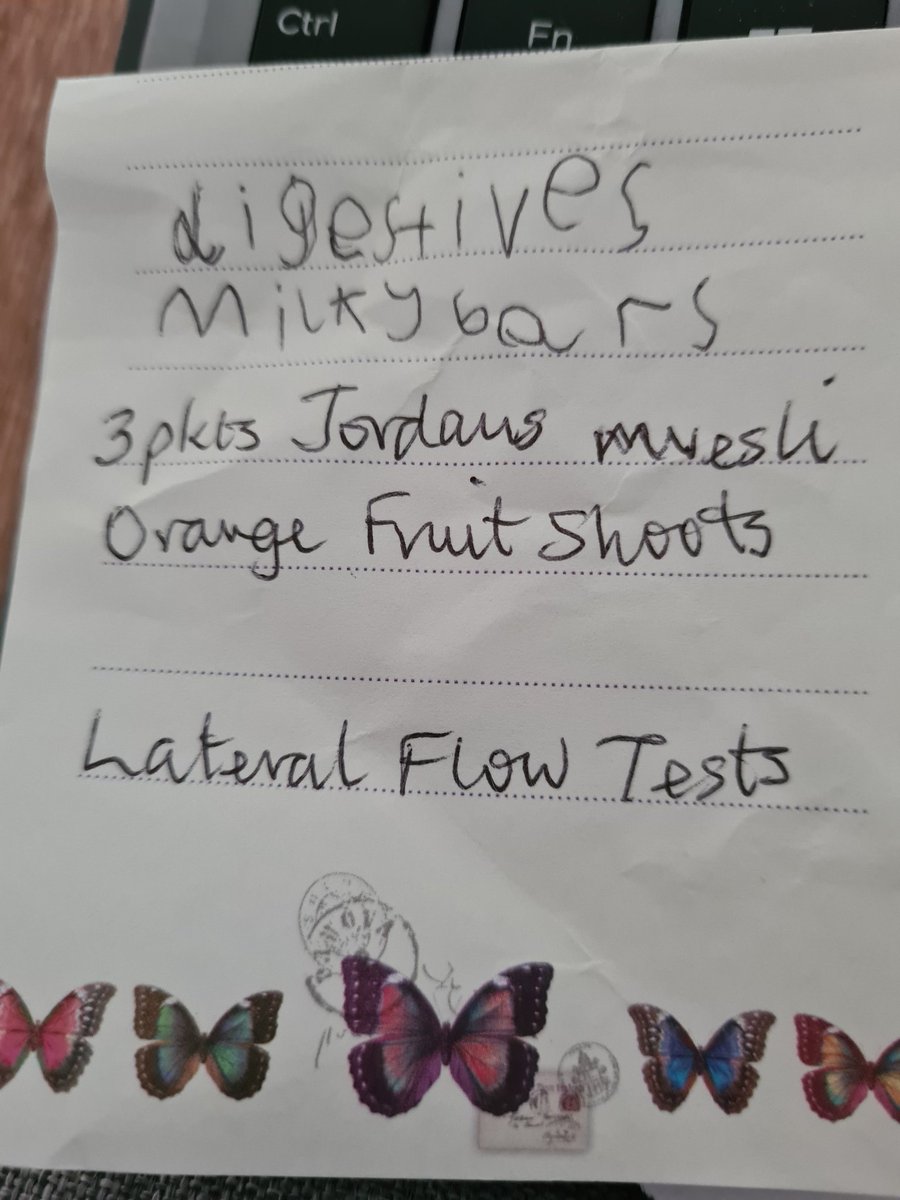 Ctrl
Fn
digestives
Milkybars
3pkts Jordans muesli
Orange Fruit Shoots
Lateral Flow Tests